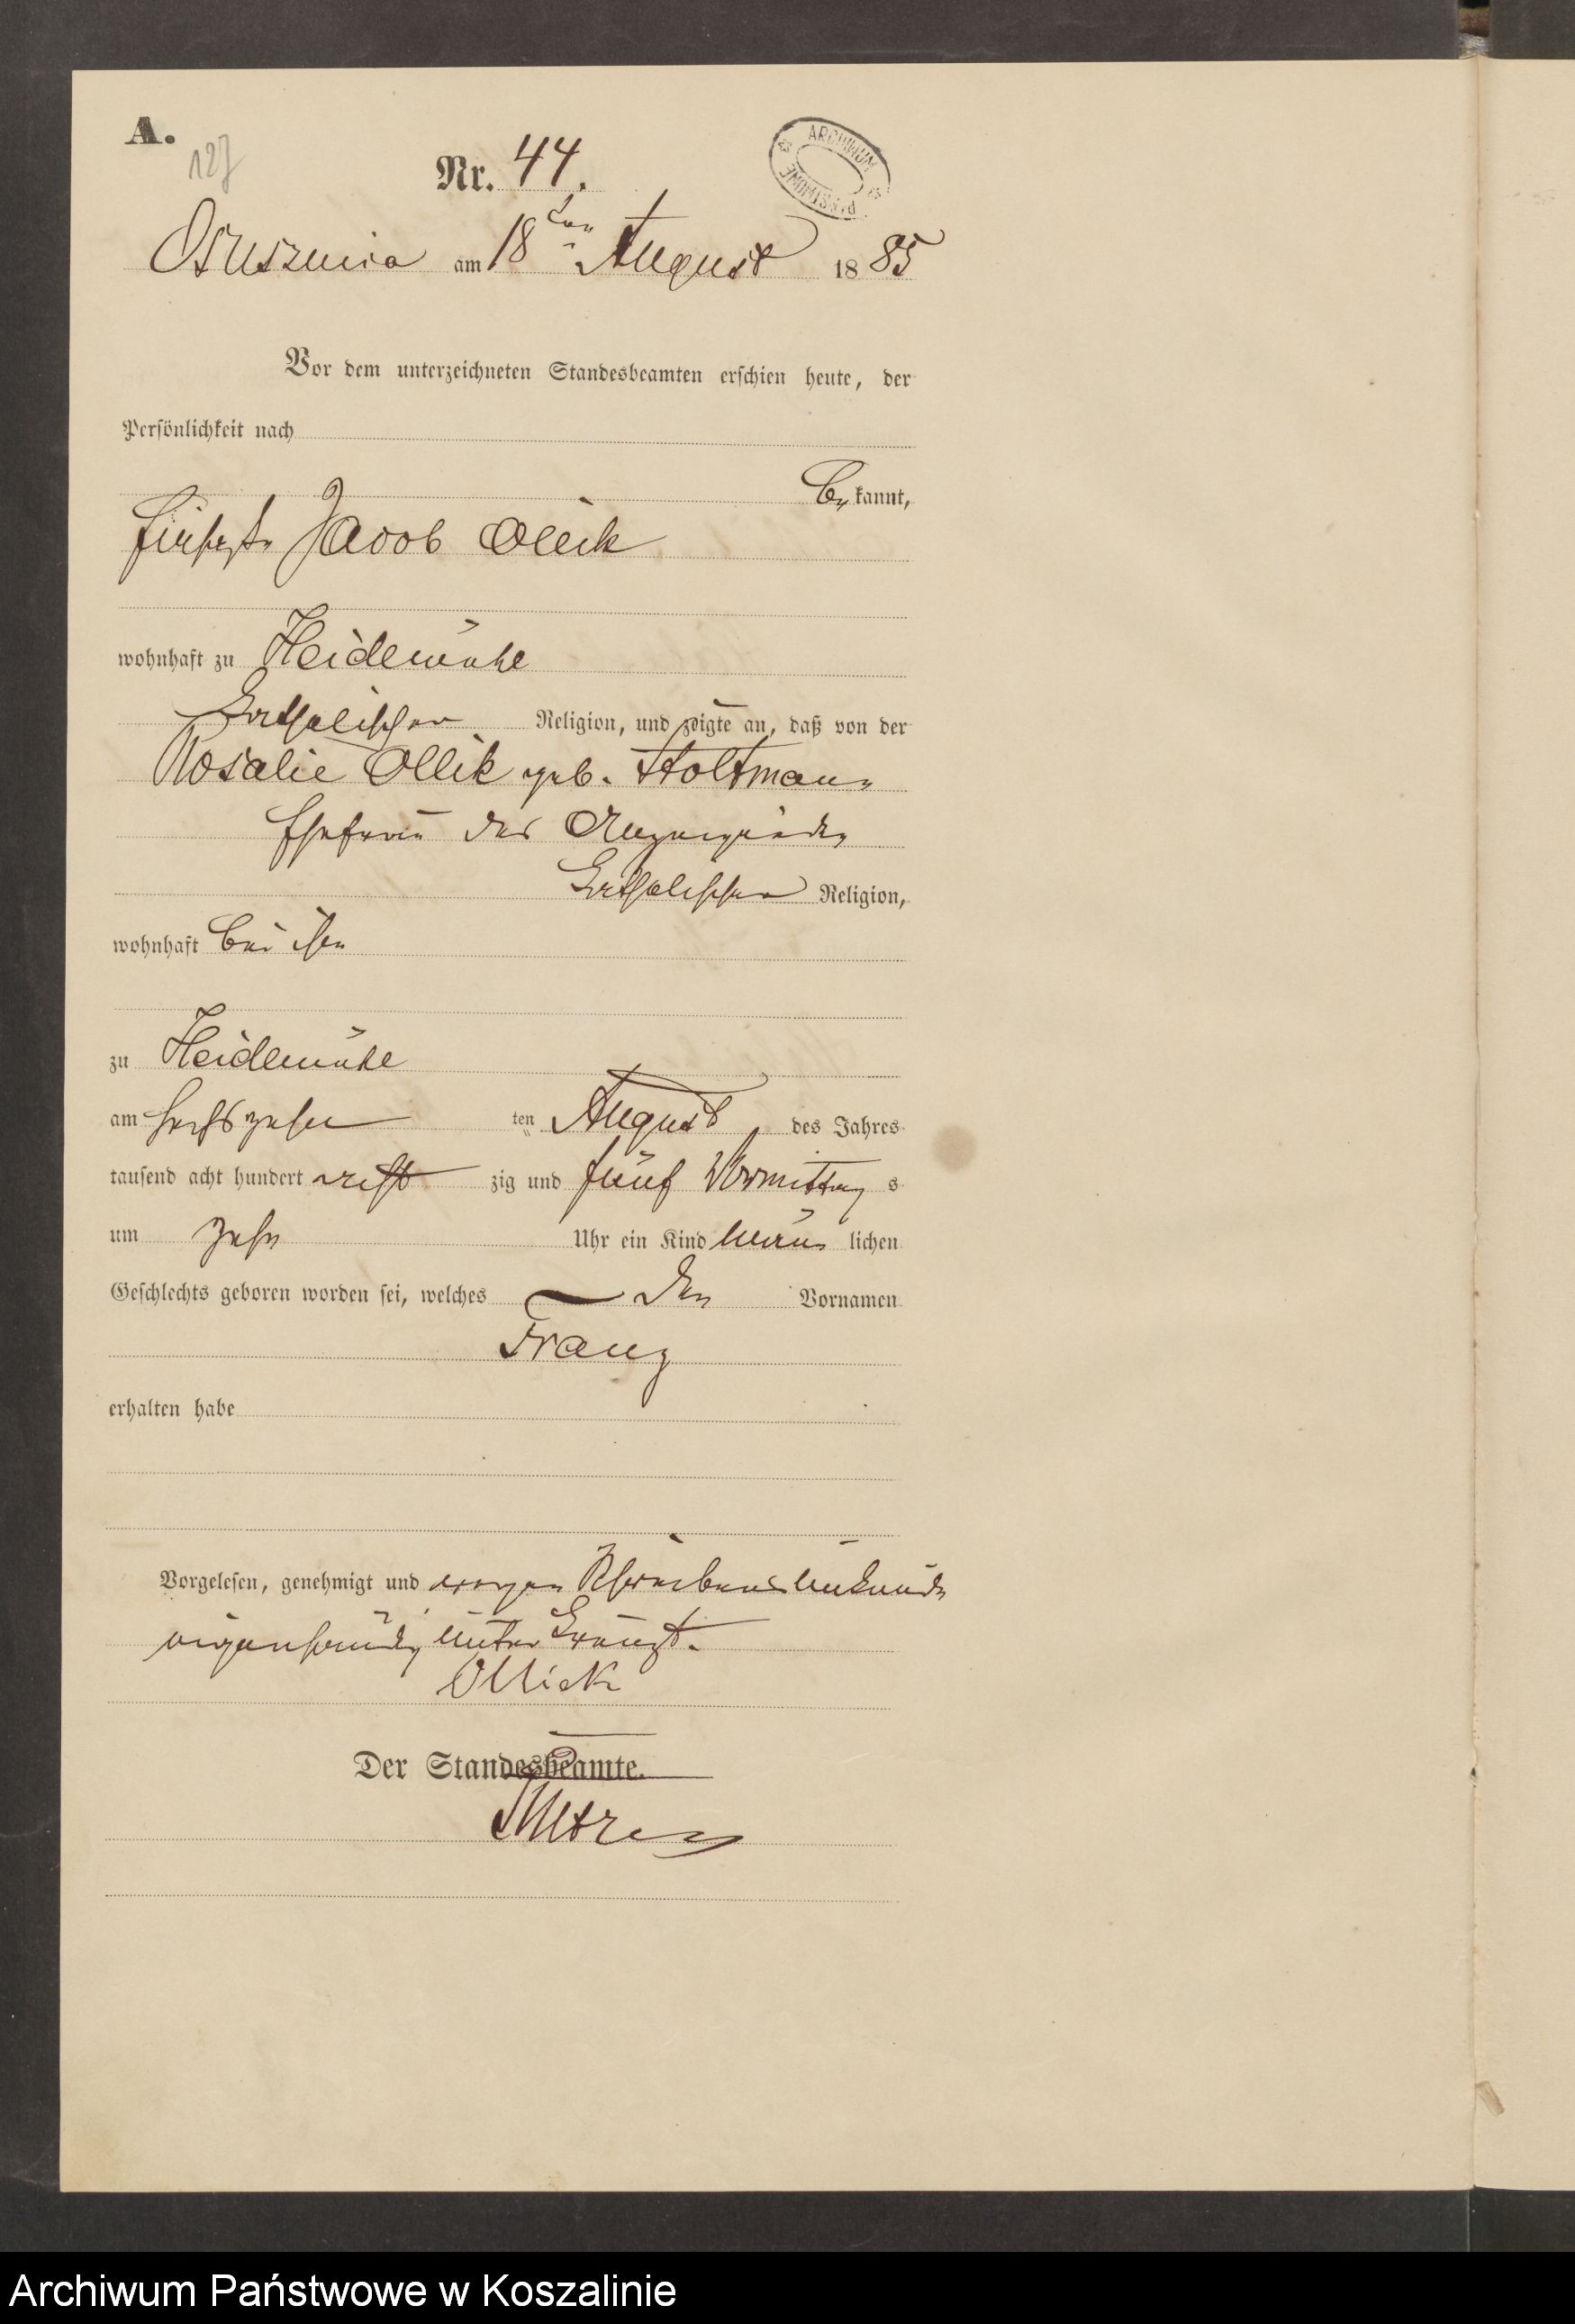 A.
127
Nr. 44.
ARCHIWUM PAŃSTWOWE
Ossusznica am 18ten August 1885
Vor dem unterzeichneten Standesbeamten erschien heute, der
Persönlichkeit nach
bekannt,
Jacob Ollik
wohnhaft zu Heidemühl
katholischer Religion, und zeigte an, daß von der
Rosalie Ollik geb. Stoltmann
Ehefrau des Anzeigenden
katholischer Religion,
wohnhaft bei ihm
zu Heidemühl
am sechszehn ten August des Jahres
tausend acht hundert acht zig und fünf Vormittag s
um zehn Uhr ein Kind männ lichen
Geschlechts geboren worden sei, welches den Vornamen
Franz
erhalten habe
Vorgelesen, genehmigt und wegen Schreibensunkunde
eigenhändig unterkreuzt.
Ollick
Der Standesbeamte.
Archiwum Państwowe w Koszalinie